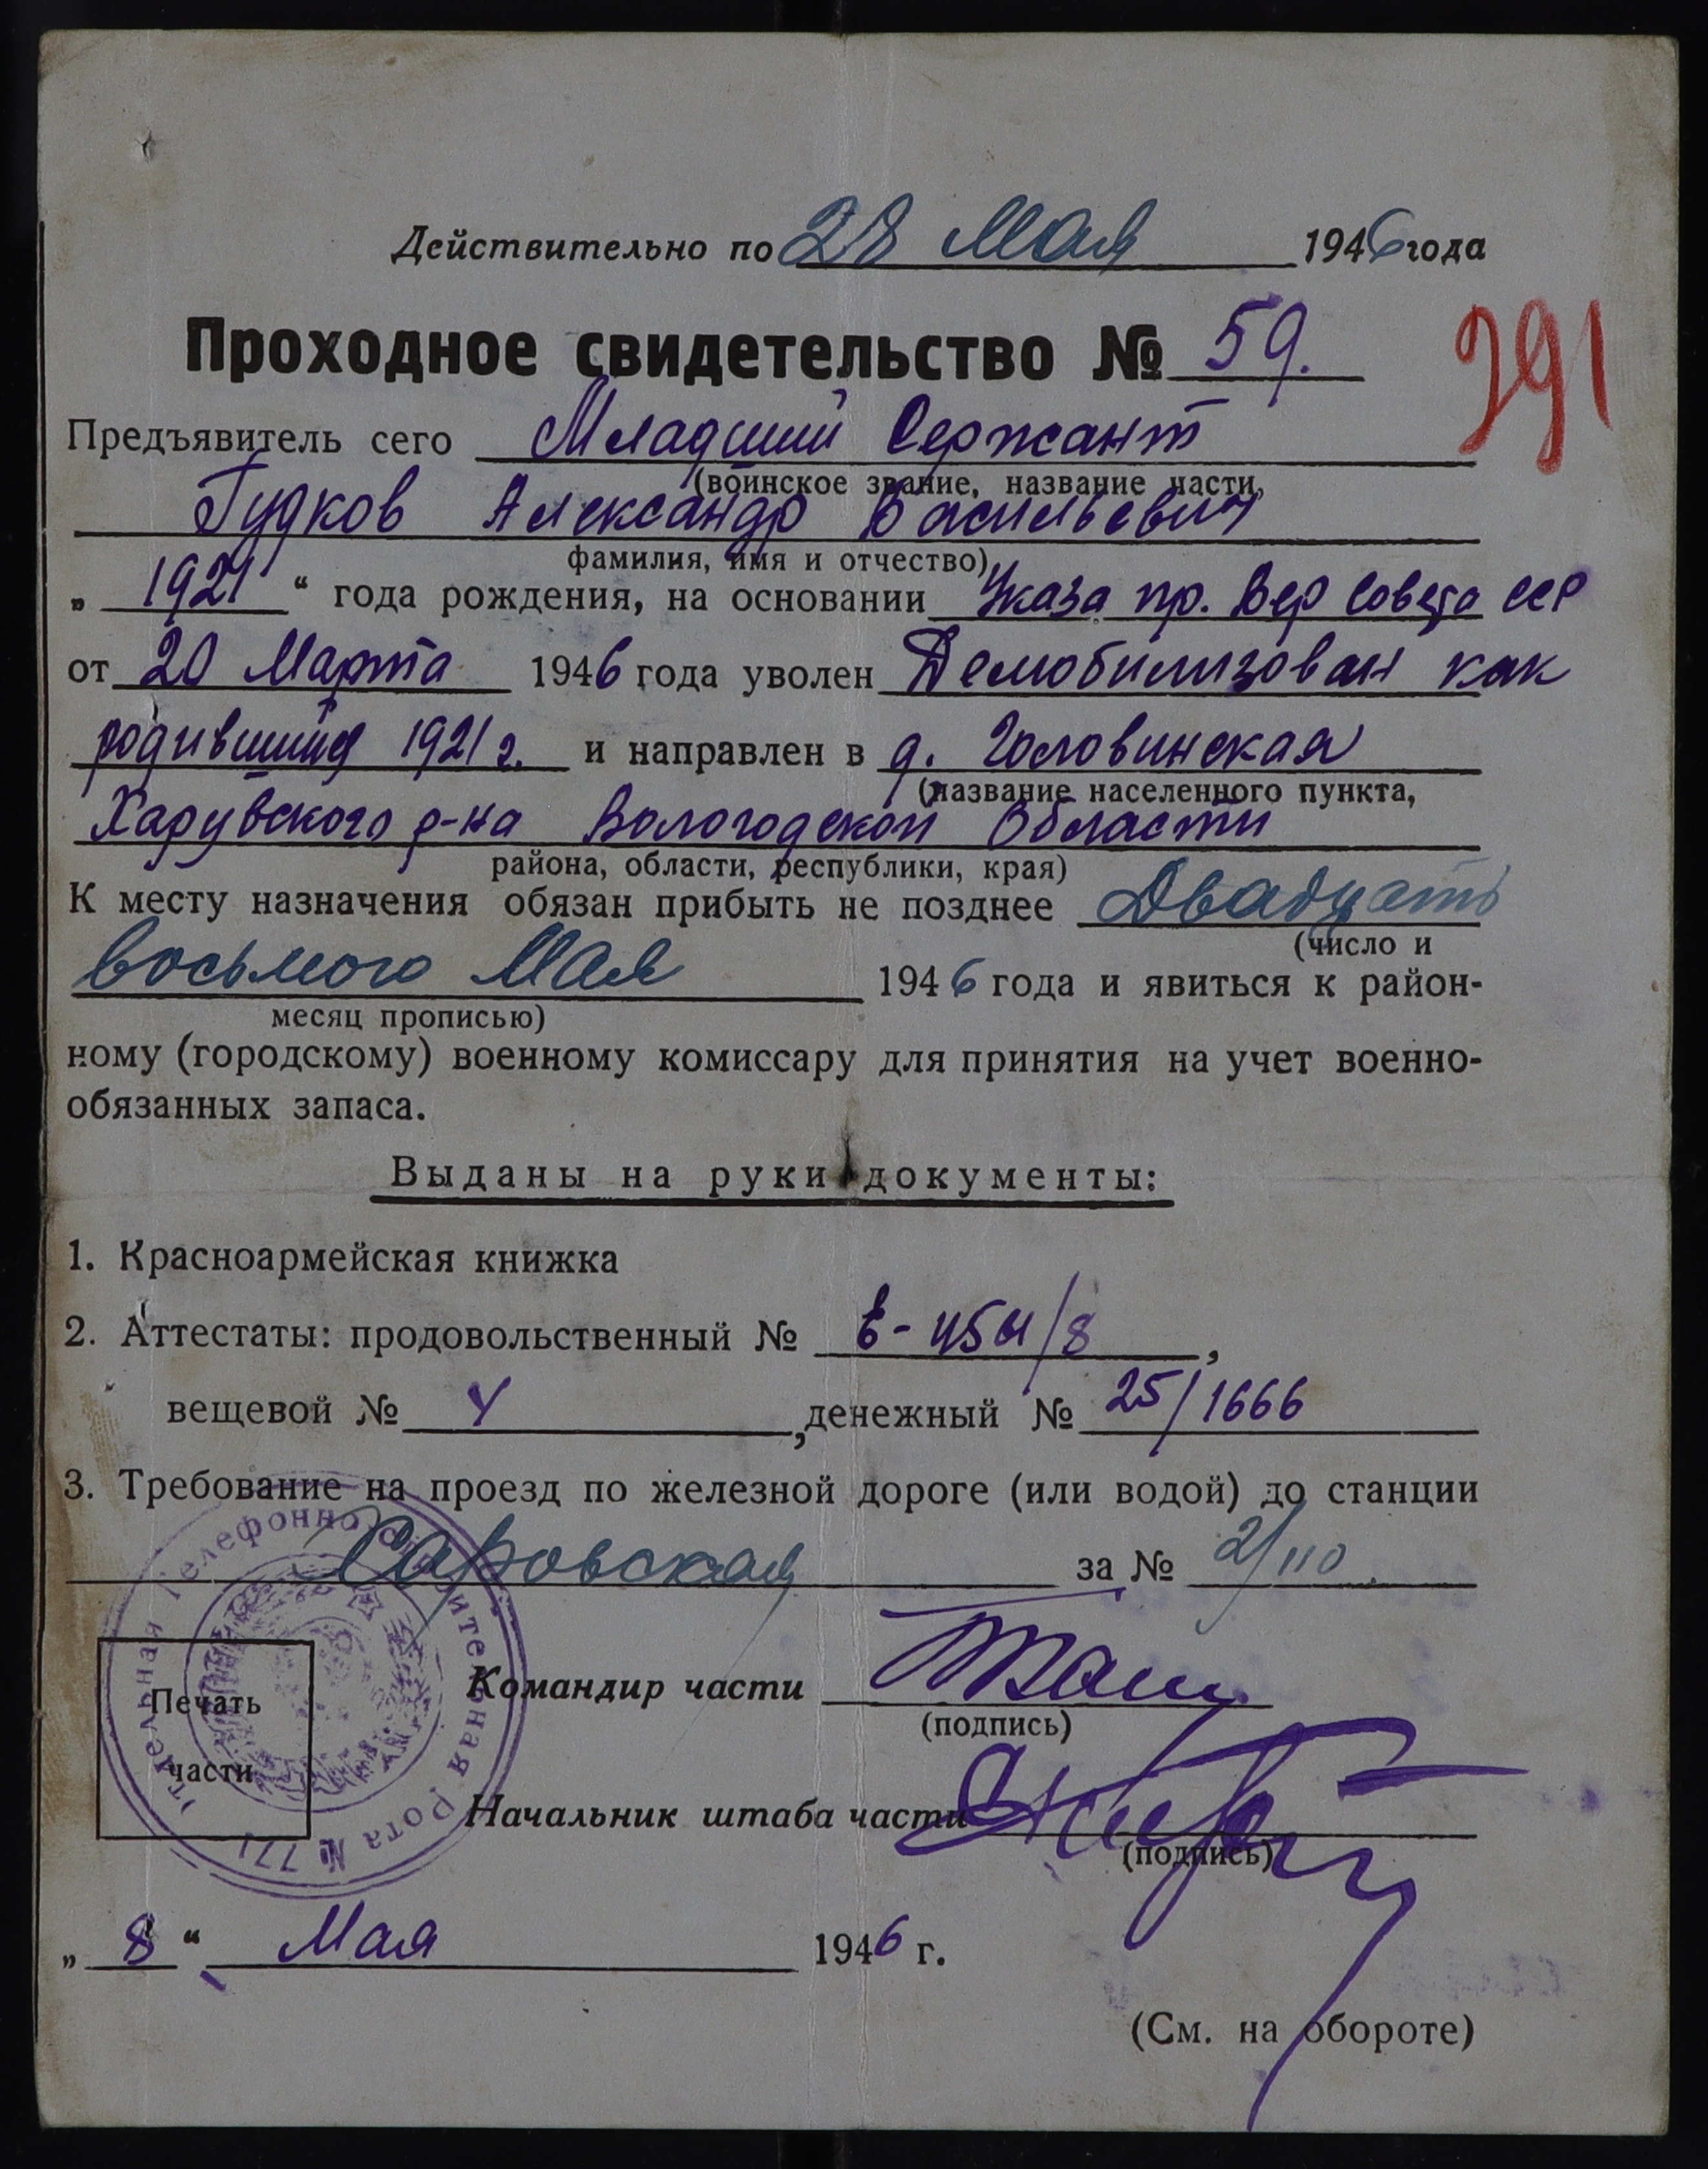 Действительно по 28 Мая 1946 года
Проходное свидетельство № 59.
291
Предъявитель сего Младший Сержант
(воинское звание, название части,
Гудков Александр Васильевич
фамилия, имя и отчество)
„ 1921 “ года рождения, на основании Указа пр. Вер Совета ССР
от 20 Марта 1946 года уволен Демобилизован как
родившийся 1921 г. и направлен в д. Головинская
(название населенного пункта,
Харувского р-на Вологодской Области
района, области, республики, края)
К месту назначения обязан прибыть не позднее Двадцать
(число и
восьмого Мая 1946 года и явиться к район-
месяц прописью)
ному (городскому) военному комиссару для принятия на учет военно-
обязанных запаса.
Выданы на руки документы:
1. Красноармейская книжка
2. Аттестаты: продовольственный №
вещевой № 4, денежный № 25/1666
3. Требование на проезд по железной дороге (или водой) до станции
Харовская за № 2/110
Отдельная Телефонно-строительная Рота № 771
Печать
части
Командир части
(подпись)
Начальник штаба части
(подпись)
„ 8 “ Мая 1946 г.
(См. на обороте)